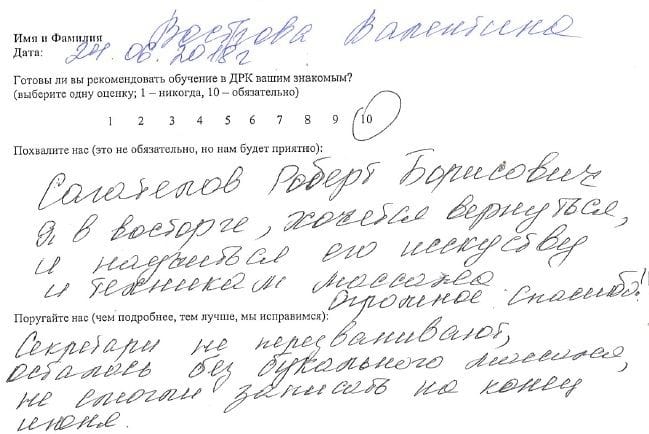 Имя и Фамилия Вострова Валентина
Дата: 24.06.2018г
Готовы ли вы рекомендовать обучение в ДРК вашим знакомым?
(выберите одну оценку; 1 – никогда, 10 – обязательно)
1 2 3 4 5 6 7 8 9 10
Похвалите нас (это не обязательно, но нам будет приятно):
Сагателов Роберт Борисович
Я в восторге, хочется вернуться,
и научиться его исскуству
и техникам массажа
огромное спасибо!!
Поругайте нас (чем подробнее, тем лучше, мы исправимся):
Секретари не перезванивают,
осталась без букального массажа,
не смогли записать на конец
июня.